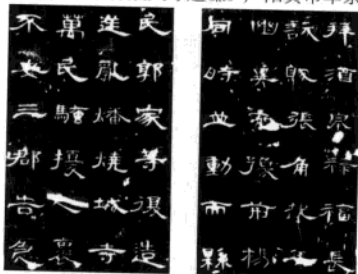 拜酒泉祿福長
訞賊張角起兵
幽冀兗豫荊楊
同時並動而縣
民郭家等復造
逆亂燔燒城寺
萬民騷擾人裏
不安三郡告急